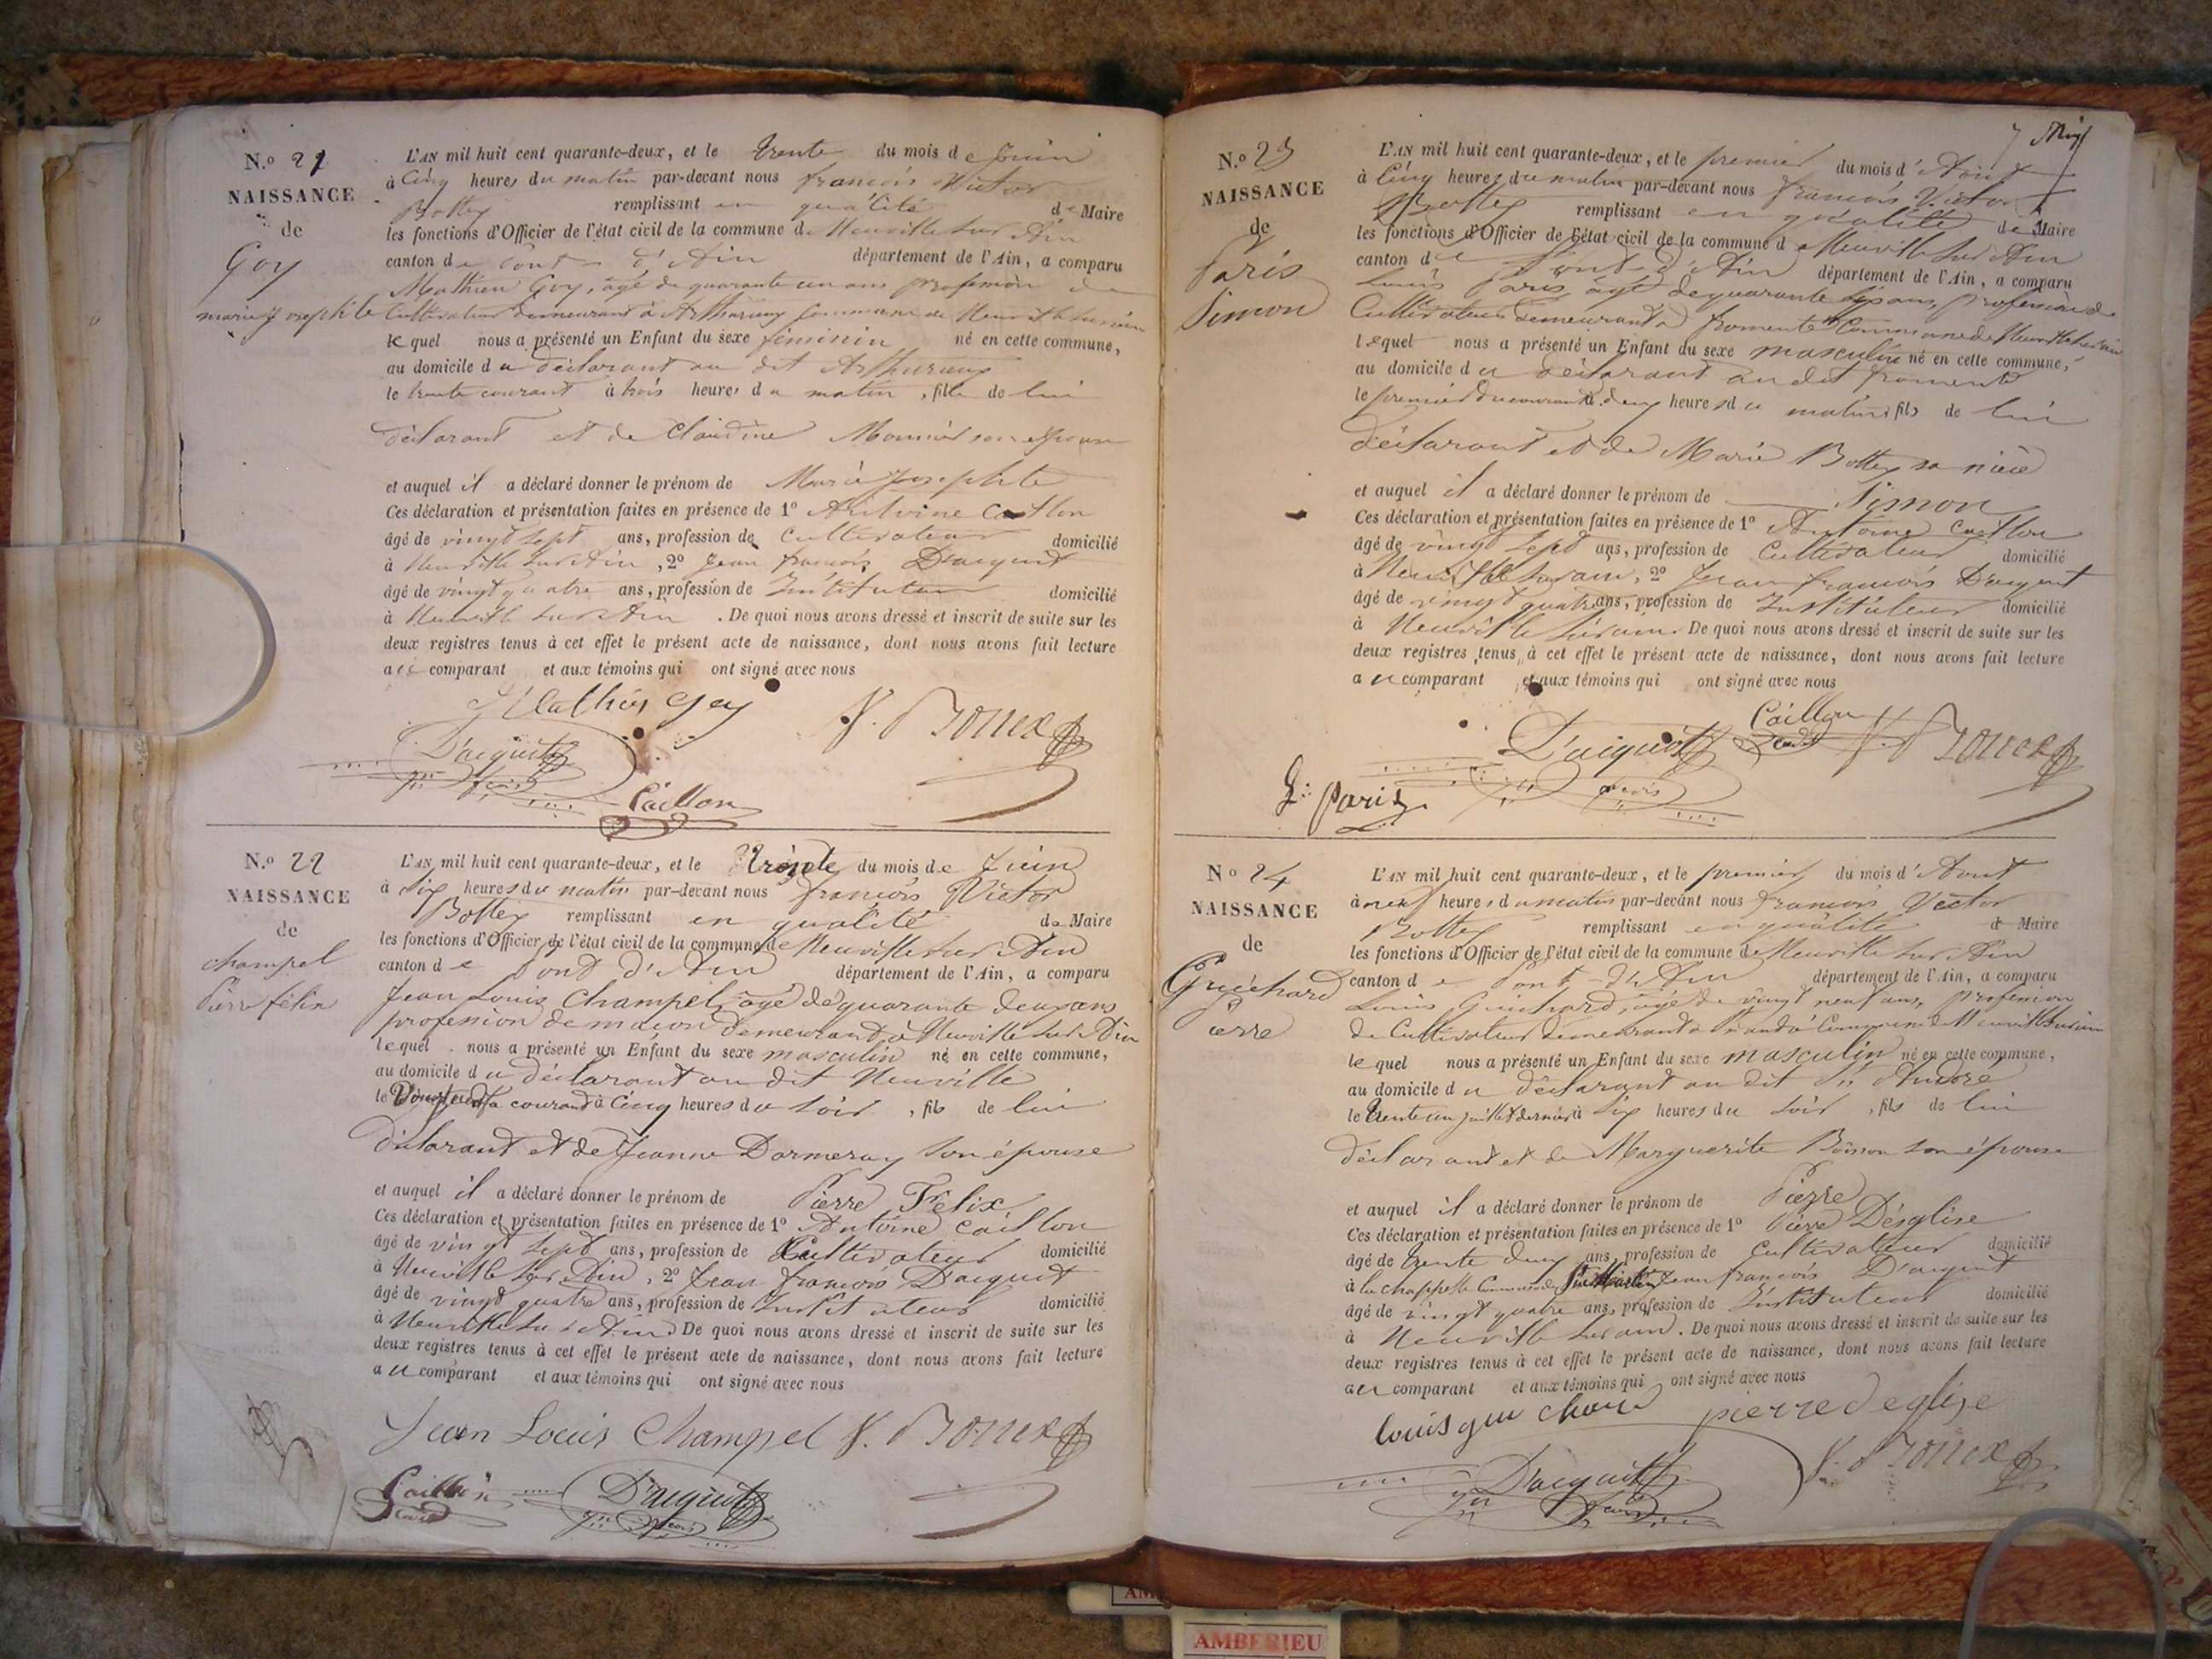 N.º 21
NAISSANCE
de
Goy
marie josephte
L'AN mil huit cent quarante-deux, et le trente du mois de Juin
à Cinq heures du matin par-devant nous françois Victor
Bottex remplissant en qualité de Maire
les fonctions d'Officier de l'état civil de la commune de Neuville sur Ain
canton de Pont d'Ain département de l'Ain, a comparu
Mathieu Goy, âgé de quarante un ans profession de
Cultivateur demeurant à Commune de Neuville sur ain
lequel nous a présenté un Enfant du sexe féminin né en cette commune,
au domicile du déclarant au dit
le trente courant à trois heures du matin, fille de lui
déclarant et de Claudine Monnier son épouse
et auquel il a déclaré donner le prénom de Marie Josephte
Ces déclaration et présentation faites en présence de 1º Antoine Caillon
âgé de vingt sept ans, profession de Cultivateur domicilié
à Neuville sur Ain, 2º Jean françois D'aiguit
âgé de vingt quatre ans, profession de Instituteur domicilié
à Neuville sur Ain. De quoi nous avons dressé et inscrit de suite sur les
deux registres tenus à cet effet le présent acte de naissance, dont nous avons fait lecture
au comparant et aux témoins qui ont signé avec nous
Mathieu Goy V. Bottex
D'aiguit
fçois
Caillon
N.º 22
NAISSANCE
de
champel
Pierre félix
L'AN mil huit cent quarante-deux, et le trente du mois de Juin
à Six heures du matin par-devant nous françois Victor
Bottex remplissant en qualité de Maire
les fonctions d'Officier de l'état civil de la commune de Neuville sur Ain
canton de Pont d'Ain département de l'Ain, a comparu
Jean Louis Champel, âgé de quarante deux ans
profession de maçon demeurant à Neuville sur Ain
lequel nous a présenté un Enfant du sexe masculin né en cette commune,
au domicile du déclarant au dit Neuville
le courant à Cinq heures du soir, fils de lui
déclarant et de Jeanne Dormeray son épouse
et auquel il a déclaré donner le prénom de Pierre Félix
Ces déclaration et présentation faites en présence de 1º Antoine Caillon
âgé de vingt sept ans, profession de Cultivateur domicilié
à Neuville sur Ain, 2º Jean françois D'aiguit
âgé de vingt quatre ans, profession de Instituteur domicilié
à Neuville sur Ain. De quoi nous avons dressé et inscrit de suite sur les
deux registres tenus à cet effet le présent acte de naissance, dont nous avons fait lecture
au comparant et aux témoins qui ont signé avec nous
Jean Louis Champel V. Bottex
Caillon D'aiguit
fçois
N.º 23
NAISSANCE
de
Paris
Simon
L'AN mil huit cent quarante-deux, et le premier du mois d'Aout
à Cinq heures du matin par-devant nous françois Victor
Bottex remplissant en qualité de Maire
les fonctions d'Officier de l'état civil de la commune de Neuville sur Ain
canton de Pont-d'Ain département de l'Ain, a comparu
Louis Paris âgé de quarante six ans, profession de
Cultivateur demeurant à fromente Commune de Neuville sur ain
lequel nous a présenté un Enfant du sexe masculin né en cette commune,
au domicile du déclarant au dit fromente
le premier du courant à deux heures du matin, fils de lui
déclarant et de Marie Bottex sa nièce
et auquel il a déclaré donner le prénom de Simon
Ces déclaration et présentation faites en présence de 1º Antoine Caillon
âgé de vingt sept ans, profession de Cultivateur domicilié
à Neuville sur ain, 2º Jean françois D'aiguit
âgé de vingt quatre ans, profession de Instituteur domicilié
à Neuville sur ain. De quoi nous avons dressé et inscrit de suite sur les
deux registres tenus à cet effet le présent acte de naissance, dont nous avons fait lecture
au comparant et aux témoins qui ont signé avec nous
Caillon
D'aiguit V. Bottex
fçois
L: Paris
Nº 24
NAISSANCE
de
Guichard
Pierre
L'AN mil huit cent quarante-deux, et le premier du mois d'Aout
à neuf heures du matin par-devant nous françois Victor
Bottex remplissant en qualité de Maire
les fonctions d'Officier de l'état civil de la commune de Neuville sur Ain
canton de Pont-d'Ain département de l'Ain, a comparu
Louis Guichard, âgé de vingt neuf ans, profession
de Cultivateur demeurant à St andré Commune de Neuville sur ain
lequel nous a présenté un Enfant du sexe masculin né en cette commune,
au domicile du déclarant au dit St André
le trente un juillet dernier à Six heures du soir, fils de lui
déclarant et de Marguerite Boisson son épouse
et auquel il a déclaré donner le prénom de Pierre
Ces déclaration et présentation faites en présence de 1º Pierre Déglise
âgé de trente deux ans, profession de Cultivateur domicilié
à la chappelle Commune de Jean françois D'aiguit
âgé de vingt quatre ans, profession de Instituteur domicilié
à Neuville sur ain. De quoi nous avons dressé et inscrit de suite sur les
deux registres tenus à cet effet le présent acte de naissance, dont nous avons fait lecture
au comparant et aux témoins qui ont signé avec nous
louis guichard pierre deglise
D'aiguit V. Bottex
fçois
AMBERIEU